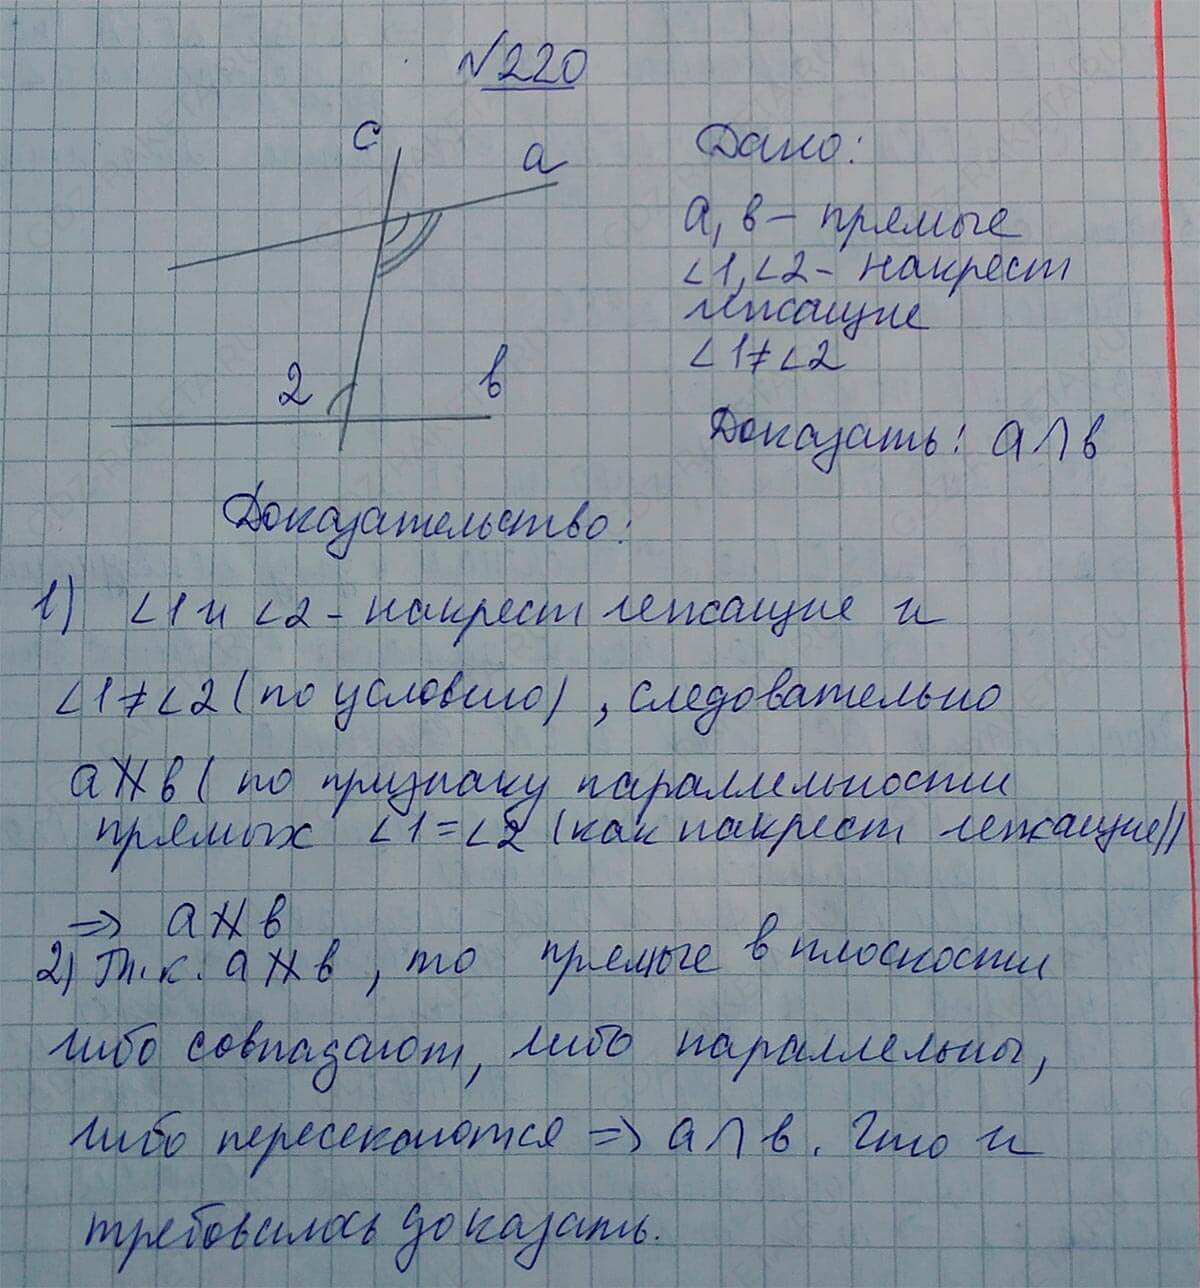 №220
c
a
2
в
Дано:
a, в – прямые
∠1, ∠2 – накрест
лежащие
∠1≠∠2
Доказать: a∩в
Доказательство:
1) ∠1 и ∠2 – накрест лежащие и
∠1≠∠2 (по условию), следовательно
a∦в (по признаку параллельности
прямых ∠1=∠2 (как накрест лежащие))
=> a∦в
2) Т.к. a∦в, то прямые в плоскости
либо совпадают, либо параллельны,
либо пересекаются => a∩в. Что и
требовалось доказать.